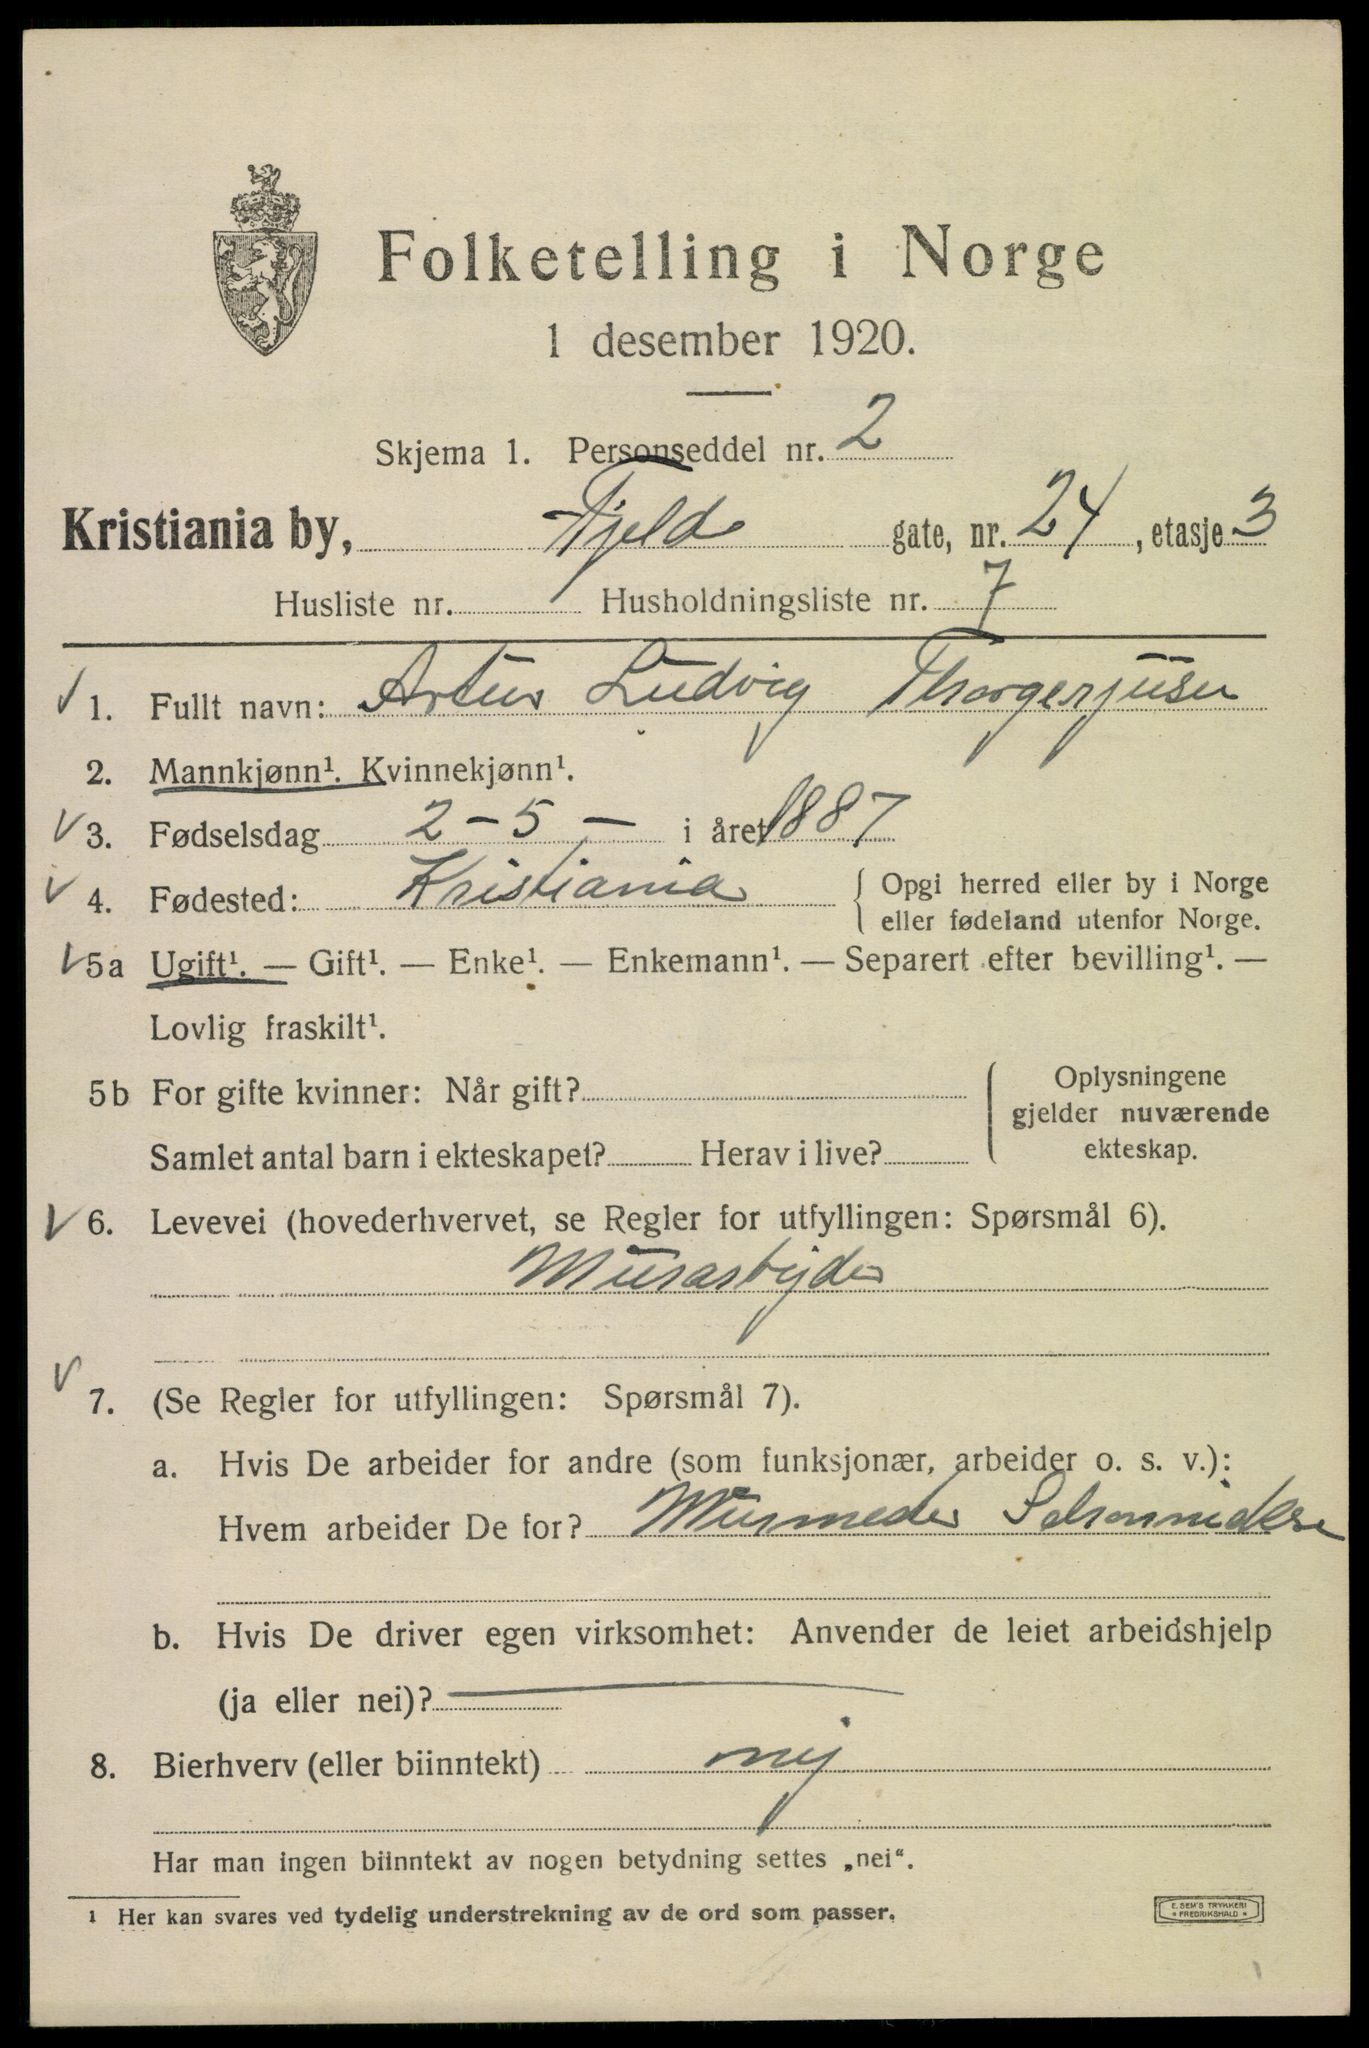 Folketelling i Norge
1 desember 1920.
Skjema 1. Personseddel nr. 2
Kristiania by, Fjeld gate, nr. 24, etasje 3
Husliste nr. Husholdningsliste nr. 7
1. Fullt navn: Artur Ludvig Thorgerjusen
2. Mannkjønn¹. Kvinnekjønn¹.
3. Fødselsdag 2-5- i året 1887
4. Fødested: Kristiania { Opgi herred eller by i Norge
eller fødeland utenfor Norge.
5a Ugift¹. — Gift¹. — Enke¹. — Enkemann¹. — Separert efter bevilling¹. —
Lovlig fraskilt¹.
5b For gifte kvinner: Når gift?
Samlet antal barn i ekteskapet? Herav i live?
{ Oplysningene
gjelder nuværende
ekteskap.
6. Levevei (hovederhvervet, se Regler for utfyllingen: Spørsmål 6).
Murarbyder
7. (Se Regler for utfyllingen: Spørsmål 7).
a. Hvis De arbeider for andre (som funksjonær, arbeider o. s. v.):
Hvem arbeider De for?
b. Hvis De driver egen virksomhet: Anvender de leiet arbeidshjelp
(ja eller nei)? —
8. Bierhverv (eller biinntekt) nej
Har man ingen biinntekt av nogen betydning settes „nei“.
1 Her kan svares ved tydelig understrekning av de ord som passer.
E. SEM'S TRYKKERI
* FREDRIKSHALD *